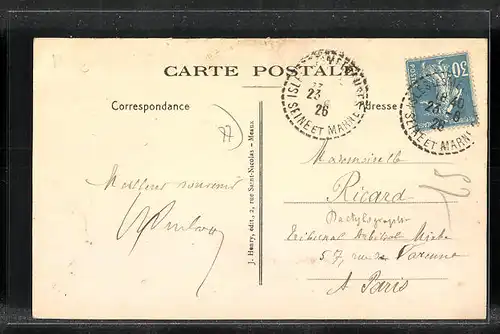 CARTE POSTALE
Correspondance
Adresse
SEINE ET MARNE
23
26
SEINE ET MARNE
30
77
Meilleur souvenir
J. Henry, édit., 2, rue Saint-Nicolas - Meaux
Mademoiselle
Ricard
Dactylographe
Tribunal Arbitral Mixte
57, rue de Varenne
A Paris